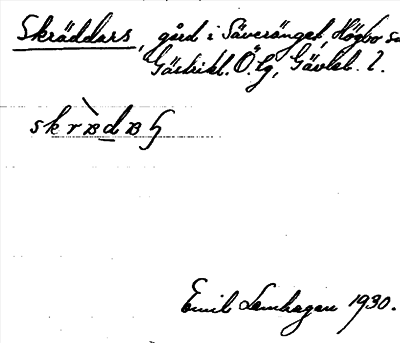 Skräddars, gård i Säveränget, Högbo sn
Gästrikl. Ö. lg, Gävleb. l.
Emil Lamhagen 1930.